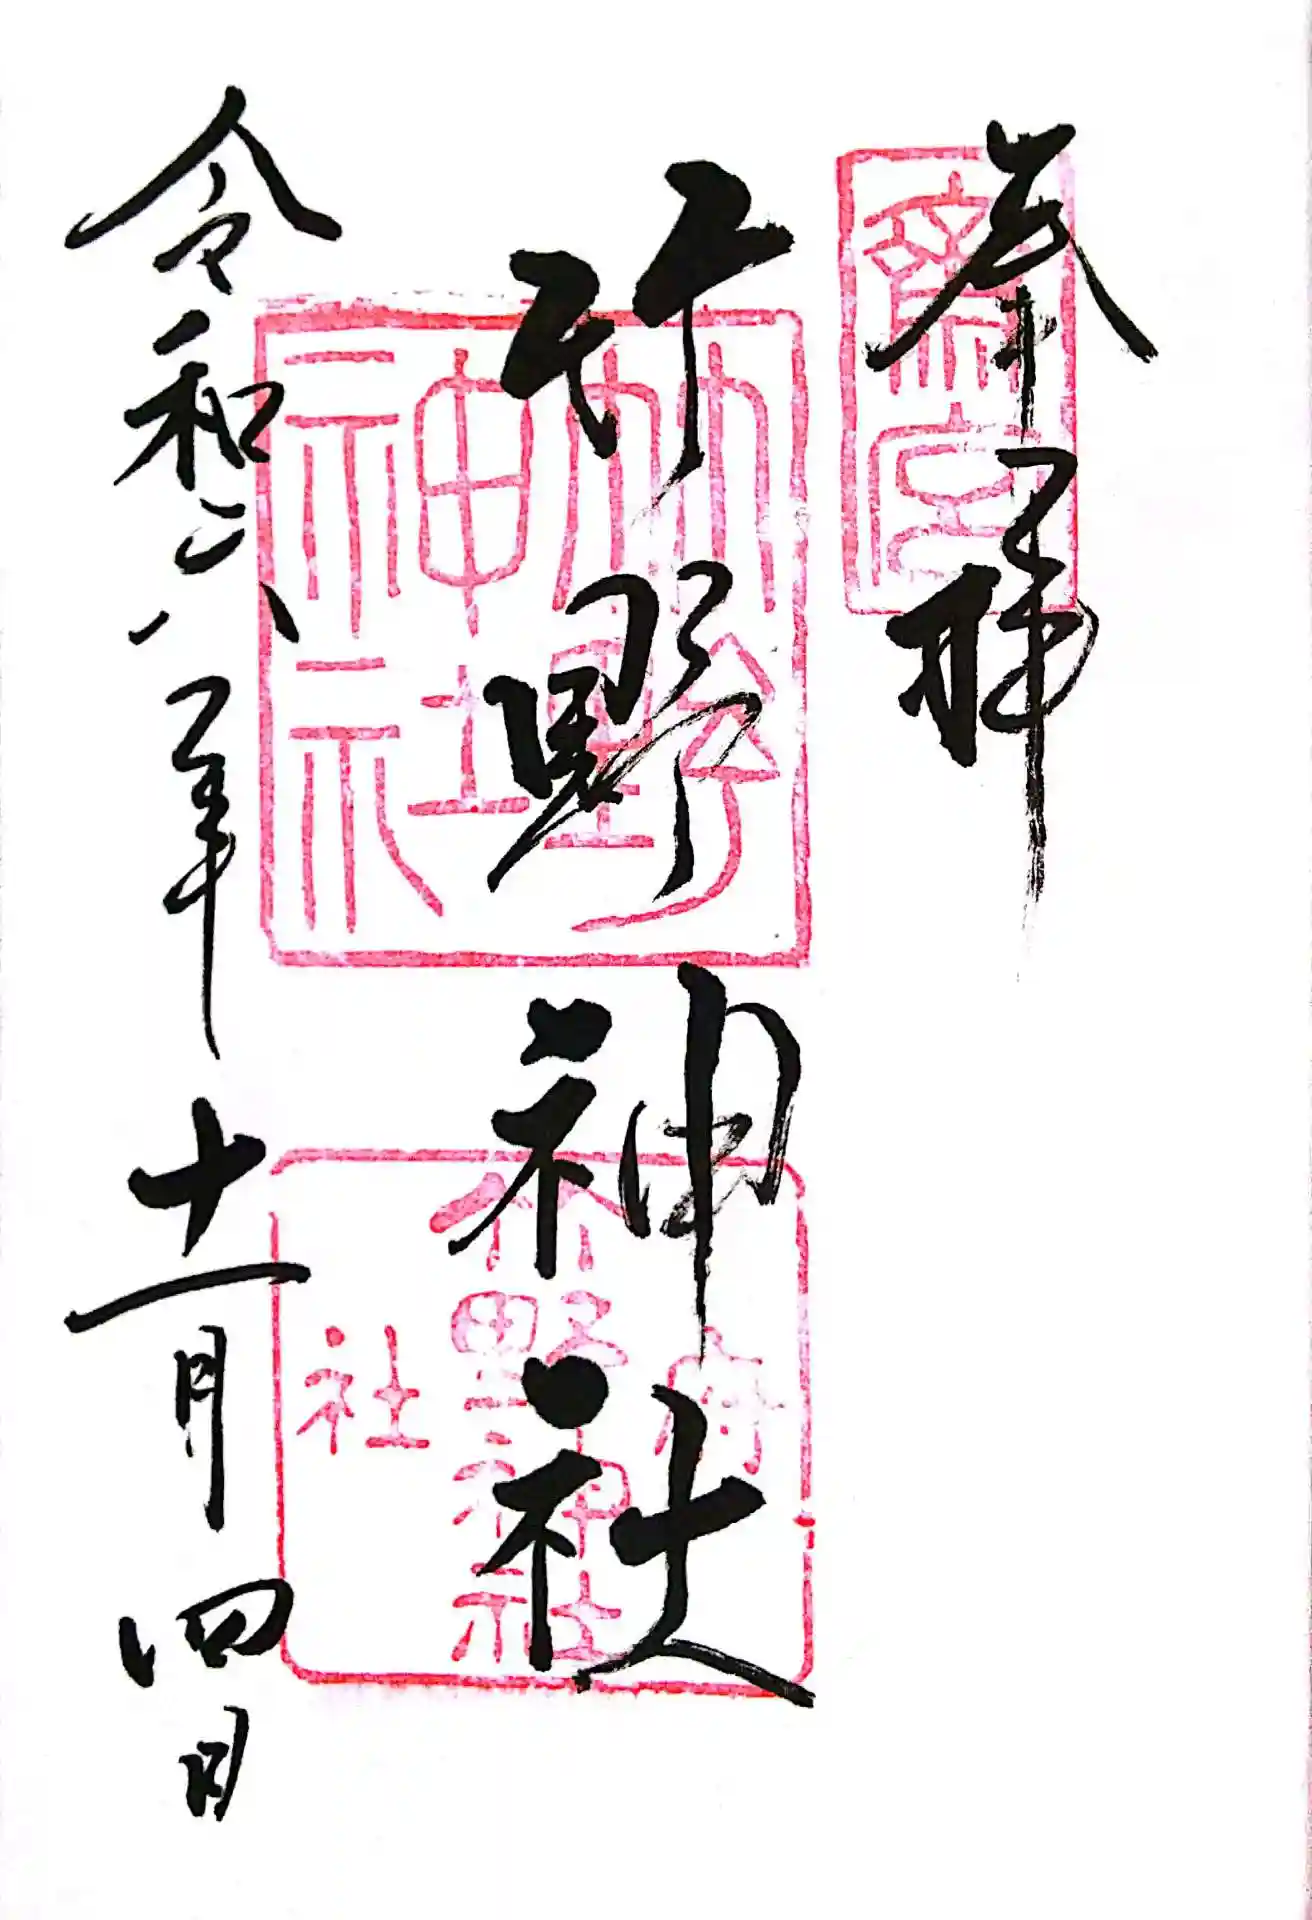 奉拝
齋宮
竹野神社
竹野
神社
府
竹野神社
社
令和六年十一月四日